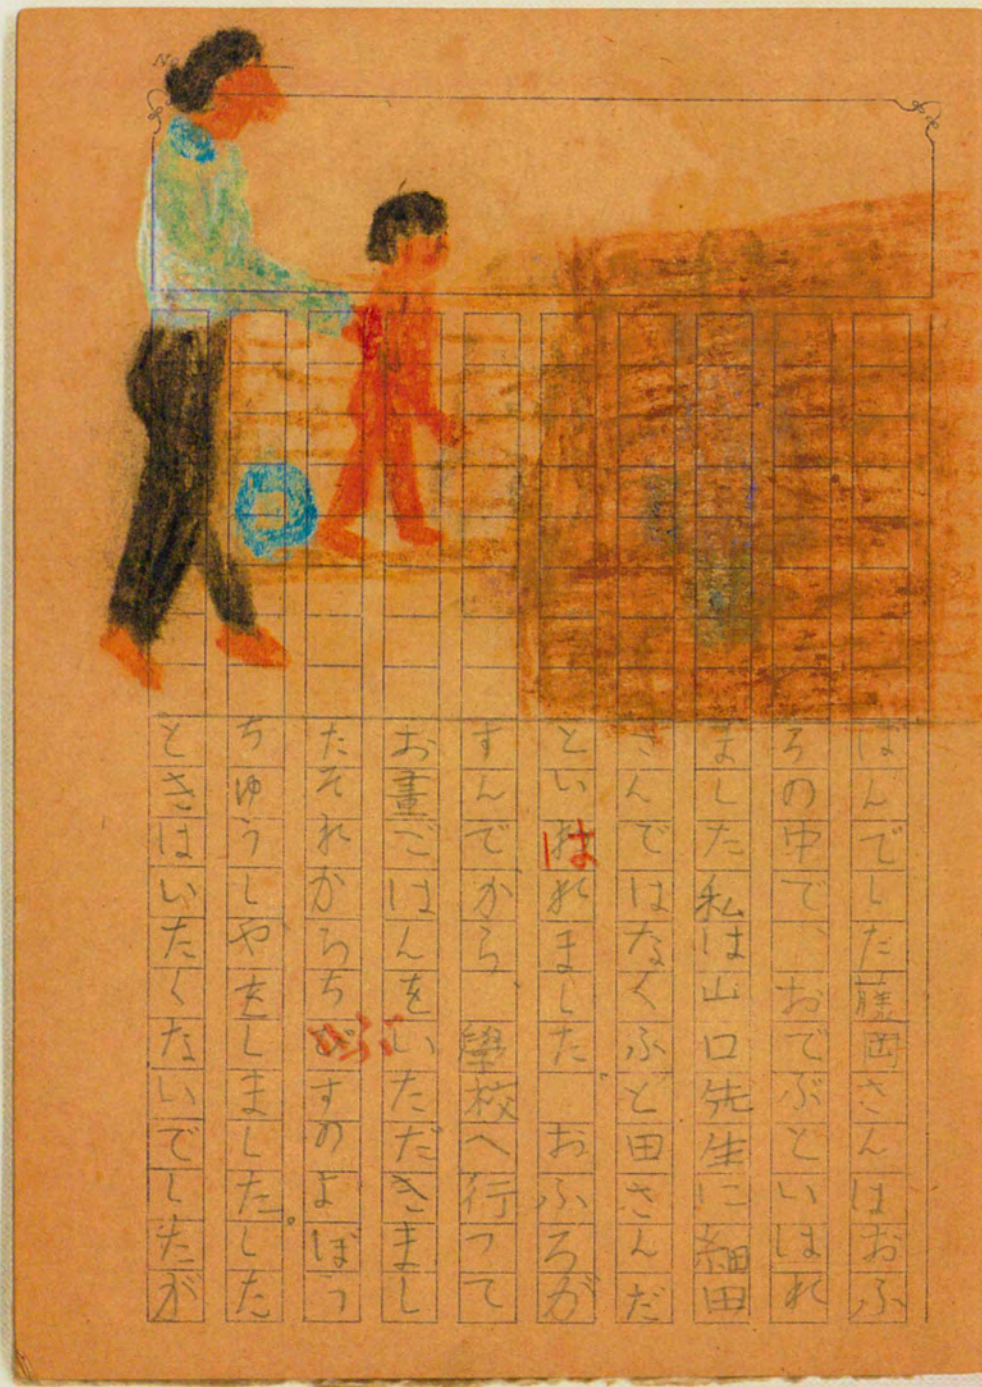 No.
ばんでした藤岡さんはおふ
ろの中で、おでぶといはれ
ました私は山口先生に細田
さんではなくふと田さんだ
といはれました。 おふろが
すんでから、學校へ行つて
お晝ごはんをいただきまし
たそれからちぶすのよぼう
ちゆうしやをしました。した
ときはいたくないでしたが